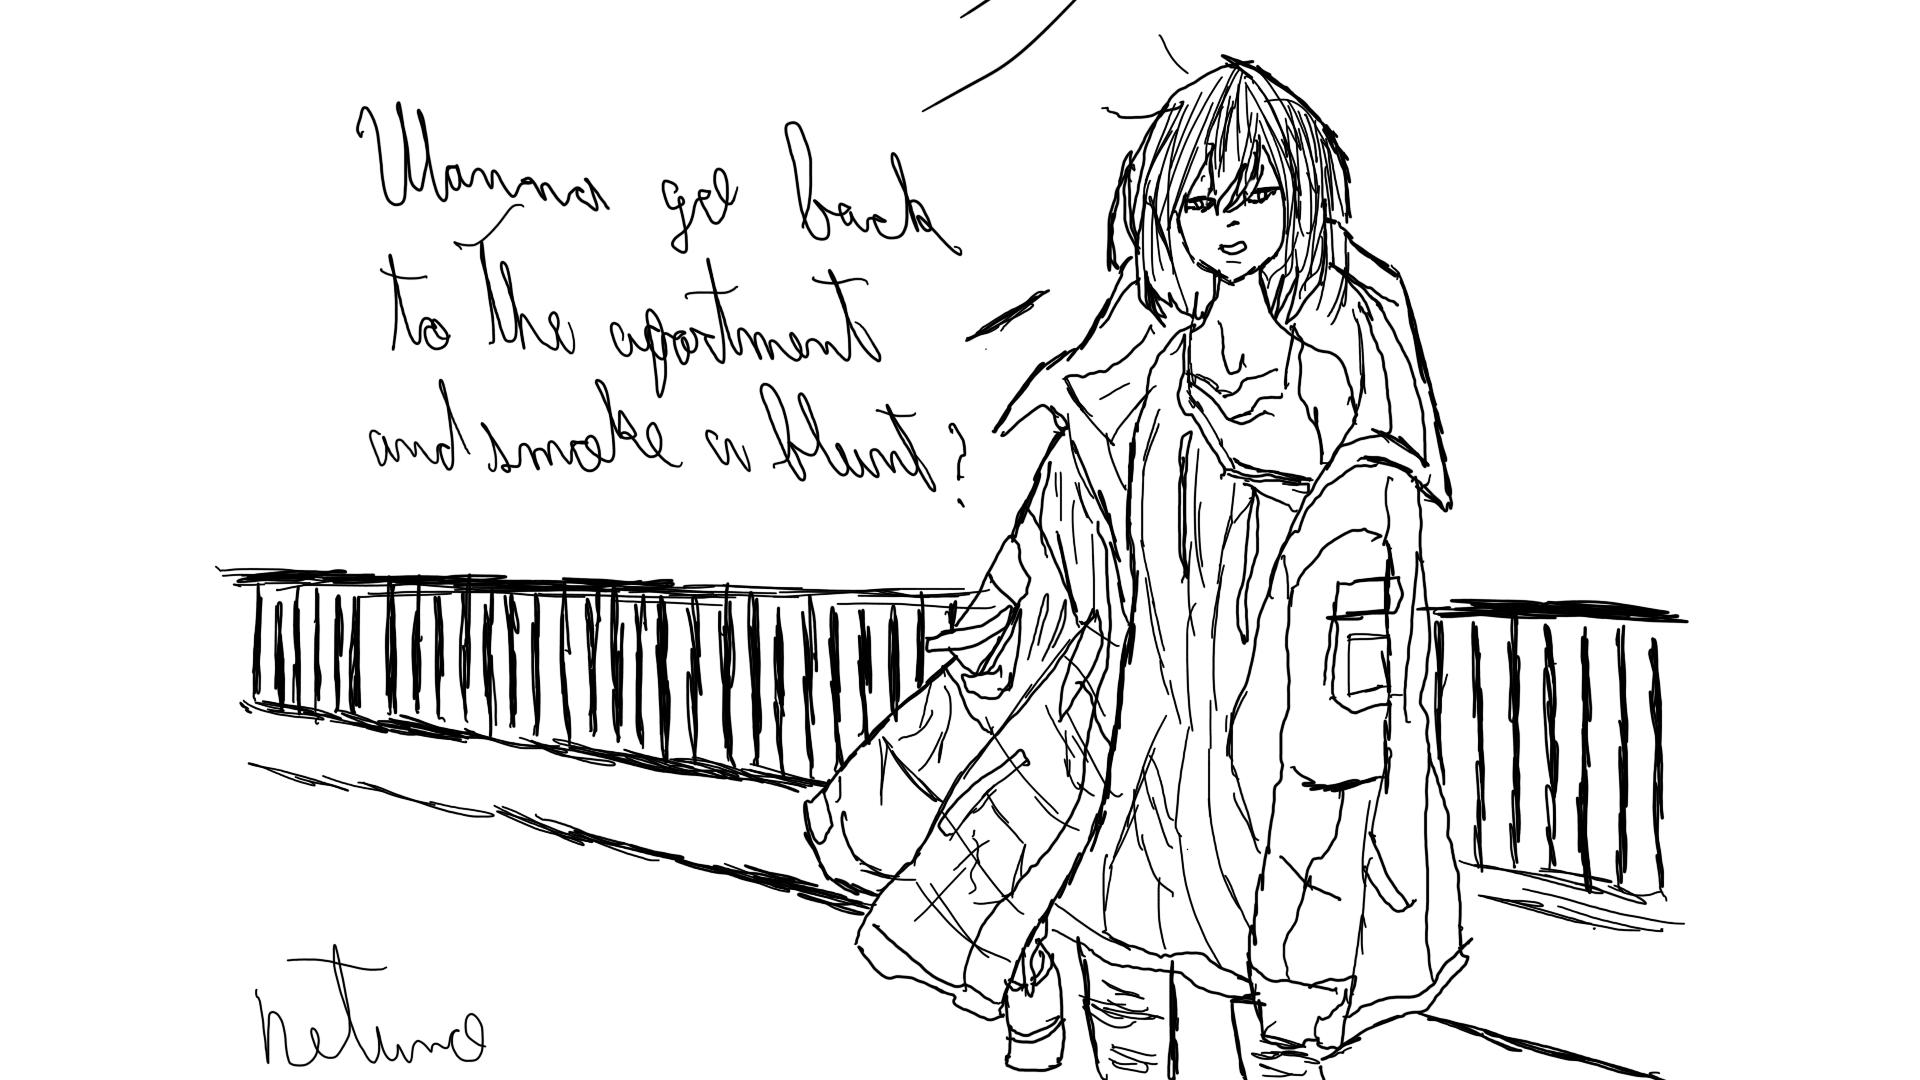 Wanna go back
to the apartment
and smoke a blunt?
netuno